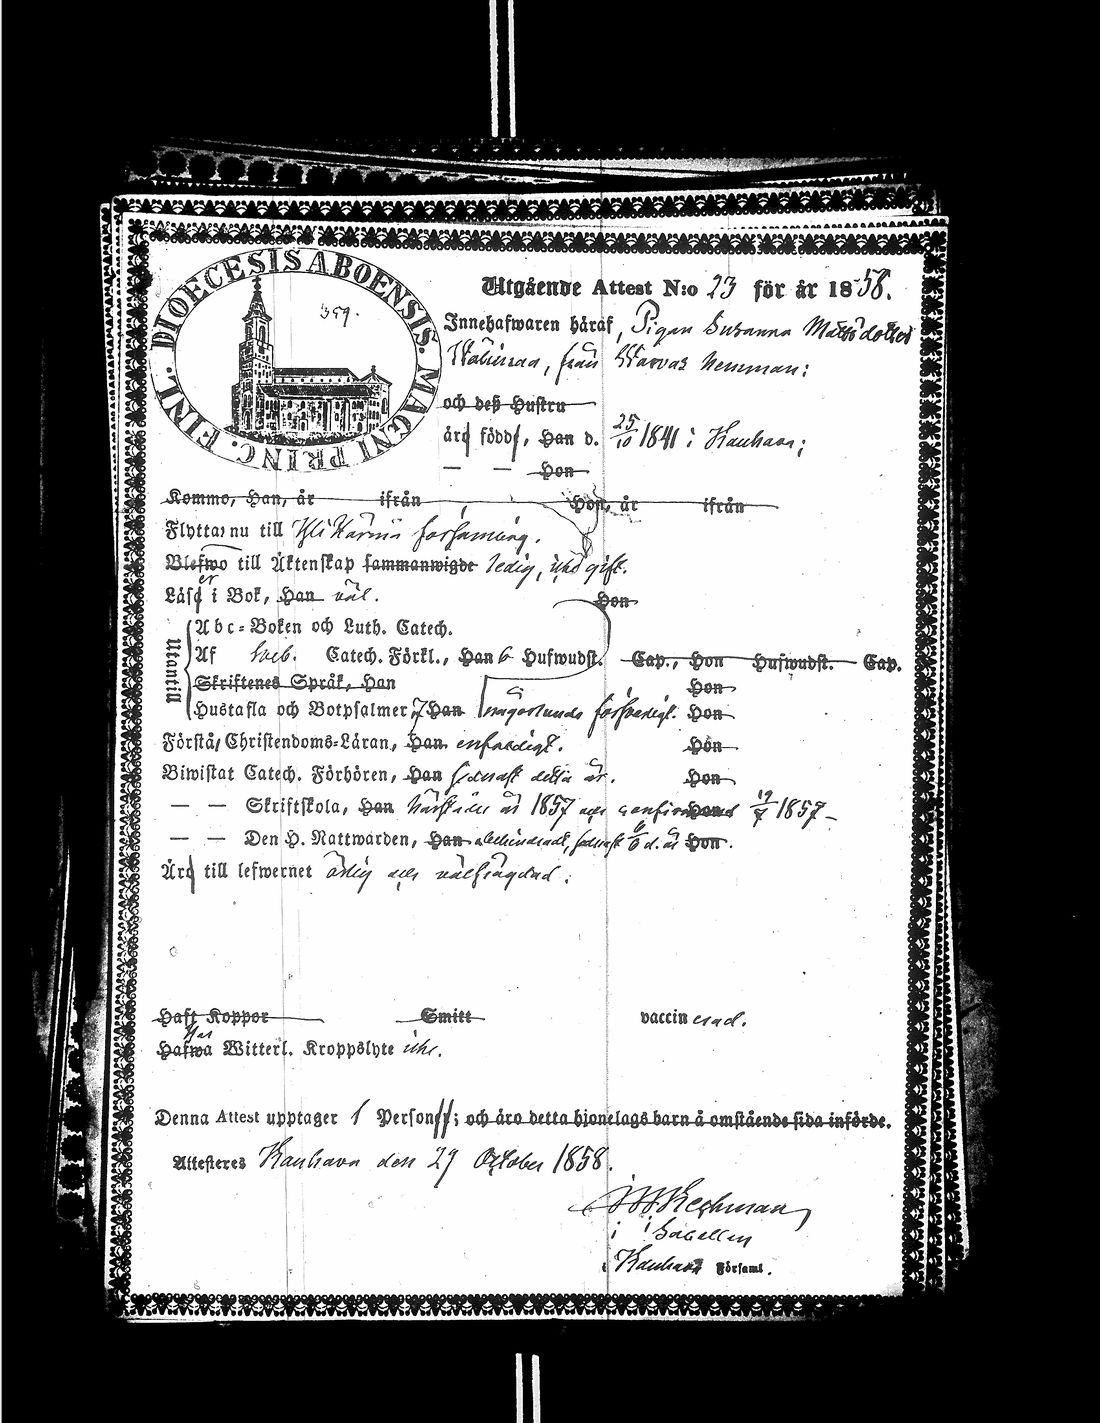 DIOECESIS ABOENSIS. MAGNI PRINC. FINL.
359.
Utgående Attest N:o 23 för år 1858.
Innehafwaren häraf, Pigan Susanna Mattsdotter
från hemman;
och deß Hustru
äro födde, Han d. 25/10 1841 i Kauhava;
— — Hon
Kommo, Han, år ifrån Hon, år ifrån
Flyttar nu till församling.
Blefwo till Äktenskap sammanwigde ledig, icke gift.
Läser i Bok, Han väl. Hon
Utantill
Abc-Boken och Luth. Catech.
Af Sveb. Catech. Förkl., Han 6 Hufwudst. Cap., Hon Hufwudst. Cap.
Skriftenes Språk, Han Hon
Hustafla och Botpsalmer, 7 Han någorlunda försvarligt. Hon
Förstå, Christendoms-Läran, Han enfaldigt. Hon
Biwistat Catech. Förhören, Han sednast detta år. Hon
— — Skriftskola, Han år 1857 och confirmerad Hon 19/7 1857
— — Den H. Nattwarden, Han obehindradt, sednast d. år Hon.
Äro till lefwernet ärlig och välfrägdad.
Haft Koppor Smitt vaccinerad.
Hafwa Har Witterl. Kroppslyte icke.
Denna Attest upptager 1 Person; och äro detta hjonelags barn å omstående sida införde.
Attesteres Kauhava den 29 October 1858.
Kauhava Församl.